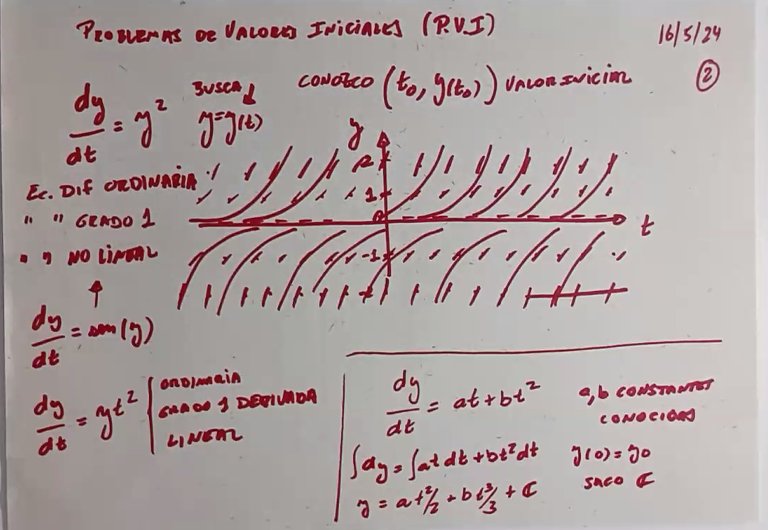 PROBLEMAS DE VALORES INICIALES (P.V.I)
16/5/24
2
dy/dt = y²
BUSCA
y=y(t)
CONOZCO (t₀, y(t₀)) VALOR INICIAL
y
2
1
0
-1
t
EC. DIF ORDINARIA
" " GRADO 1
" " NO LINEAL
dy/dt = sen(y)
dy/dt = yt²
ORDINARIA
GRADO 1 DERIVADA
LINEAL
dy/dt = at + bt²
a,b CONSTANTES
CONOCIDAS
∫dy = ∫at dt + bt² dt
y(0) = y₀
y = a t²/2 + b t³/3 + C
SACO C